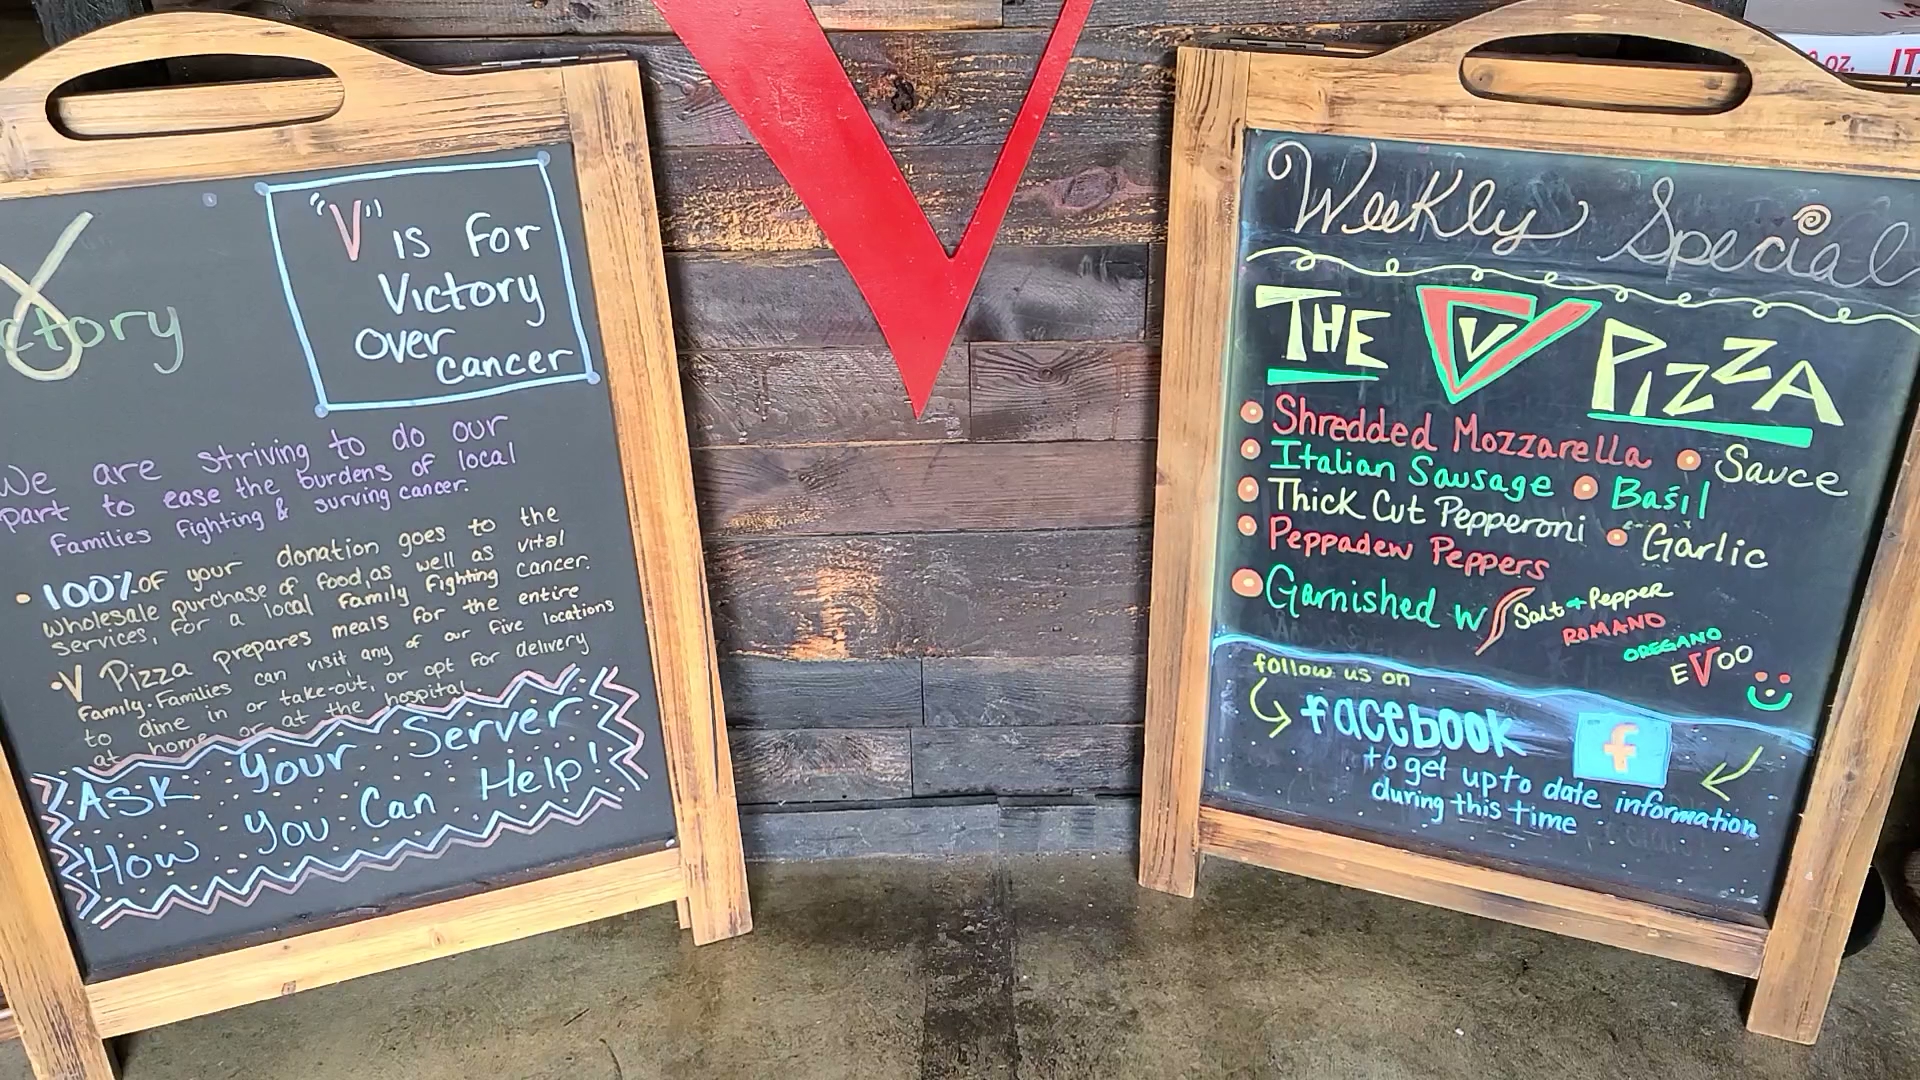 ctory
"V" is For
Victory
over
cancer
We are striving to do our
part to ease the burdens of local
Families Fighting & surving cancer.
• 100% OF your donation goes to the
wholesale purchase of food, as well as vital
services, for a local family fighting cancer.
• V Pizza prepares meals for the entire
family. Families can visit any of our five locations
to dine in or take-out, or opt for delivery
at home or at the hospital.
Ask Your Server
How You Can Help!
V
Weekly Special
THE V PIZZA
• Shredded Mozzarella • Sauce
• Italian Sausage • Basil
• Thick Cut Pepperoni • Garlic
• Peppadew Peppers
• Garnished w/ Salt + Pepper
ROMANO
OREGANO
EVOO
follow us on
facebook f
to get upto date information
during this time
OZ. IT